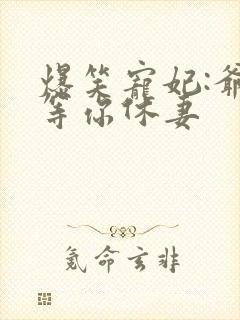 爆笑寵妃:爺
等你休妻
氪命玄非